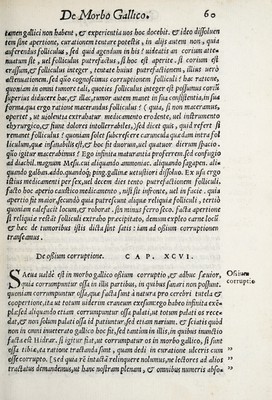 De Morbo Gallico. 60
tamen gallici non habent, & experientia uos hoc docebit. & ideo dissoluen
tem sine apertione, curationem tentare potestis, in alijs autem non, quia
auferendus folliculus, sed quid agendum in his? uideatis an corium atte-
nuatum sit, uel folliculus putrefactus, si hoc est aperite. si corium est
crassum, & folliculus integer, tentate huius putrefactionem, illius uerò
attenuationem. sed quo cognoscimus corruptionem folliculi? hac ratione,
quoniam in omni tumore tali, quoties folliculus integer est possumus corium
superius diducere hac, & illac, tumor autem manet in sua consistentia, in sua
forma, qui ergo ratione manendus folliculus? quia, si non maneramus,
oportet, ut uiolentia extrabatur medicamento erodente, uel instrumento
chyrurgico, & sunt dolores intollerabiles, sed dicet quis, quid refert si
remanet folliculus? quoniam solet subcrescere caruncula quædam intra fol
liculum, quæ insanabilis est, & hoc fit duorum, uel quatuor dierum spacio.
quo igitur maceraburnus? Ego infinita maturantia profiteor sed confugio
ad diachil. magnum Mesu. cui aliquando ammoniac. aliquando sagapen. ali-
quando galban. addo. quandoq; ping. gallinæ uetustiori dissoluo. Ex usu ergo
istius medicamenti per sex, uel decem dies tento putrefactionem folliculi.
facto hoc aperio caustico medicamento, nisi sit infirmus, uel in facie. quia
apertio fit maior, secundò quia putrescunt aliquæ reliquiæ folliculi, tertiò
quoniam calefacit locum, & roborat. sin minus ferro seco. facta apertione
si reliquiæ restent folliculi extraho precipitato, demum expleo carne locum
& hæc de tumoribus istis dicta sint satis: iam ad ossium corruptionem
transeamus.
De ossium corruptione. CAP. XCVI.
SAeua ualdè est in morbo gallico ossium corruptio, & adhuc sæuior,
quia corrumpuntur ossa in illis partibus, in quibus sanari non possunt.
quoniam corrumpuntur ossa, quæ facta sunt à natura pro cerebri tutela &
coopertione, ita ut totum uiderim cranium exesum, ego habeo infinita exem
pla, sed aliquando etiam corrumpuntur ossa palati, ut totum palati os rece
dat, & non solum palati ossa id patiuntur, sed etiam narium. & sciatis quòd
non in omni inueterato gallico hoc fit, sed tantum in illis, in quibus inunctio
facta est Hidrar. si igitur fiat, ut corrumpatur os in morbo gallico, si sunt
ossa tibiæ, ea ratione tractanda sunt, quam dedi in curatione ulceris cum
osse corrupto. [sed quia rẽ intactã relinquere nolumus, ne lectores ad alios
tractatus demandemus, ut hanc nostram plenam, & omnibus numeris abso-
Ossium
corruptio